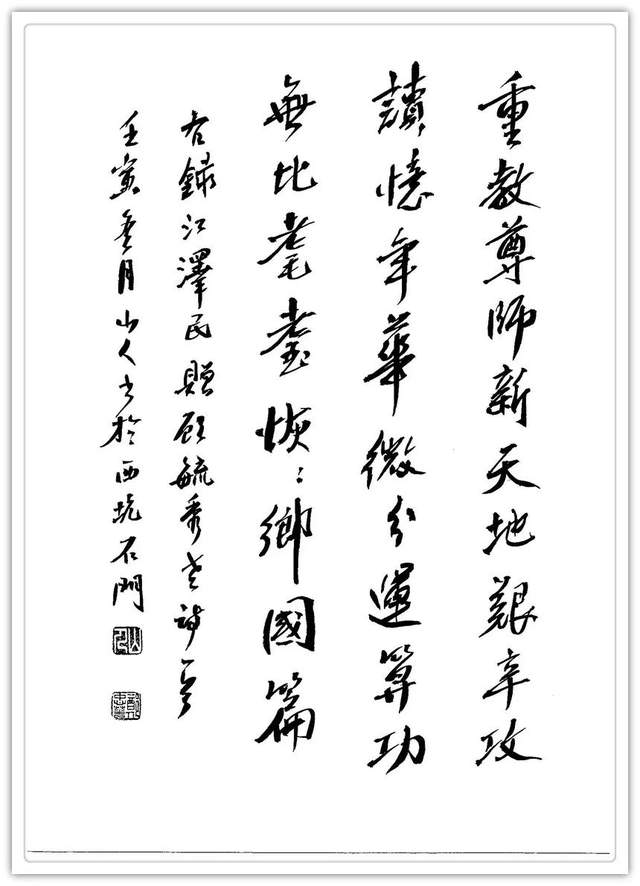 重教尊師新天地艱辛攻
讀憶年華微分運算功
無比耄耋恢〻鄉國篇
右錄江澤民贈顧毓秀老詩一首
壬寅冬月山人書於西坑石門